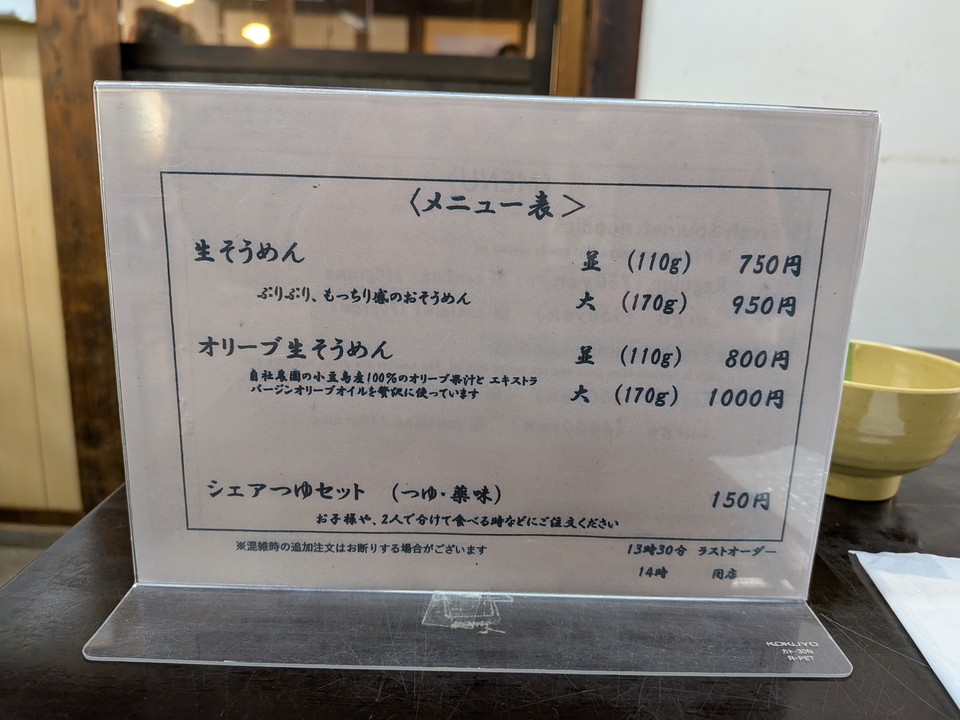 〈メニュー表〉
生そうめん 並 (110g) 750円
ぷりぷり、もっちり感のおそうめん 大 (170g) 950円
オリーブ生そうめん 並 (110g) 800円
自社農園の小豆島産100%のオリーブ果汁と エキストラ
バージンオリーブオイルを贅沢に使っています 大 (170g) 1000円
シェアつゆセット (つゆ・薬味) 150円
お子様や、2人で分けて食べる時などにご注文ください
※混雑時の追加注文はお断りする場合がございます 13時30分 ラストオーダー
14時 閉店
KOKUYO
カト-30N
R-PET